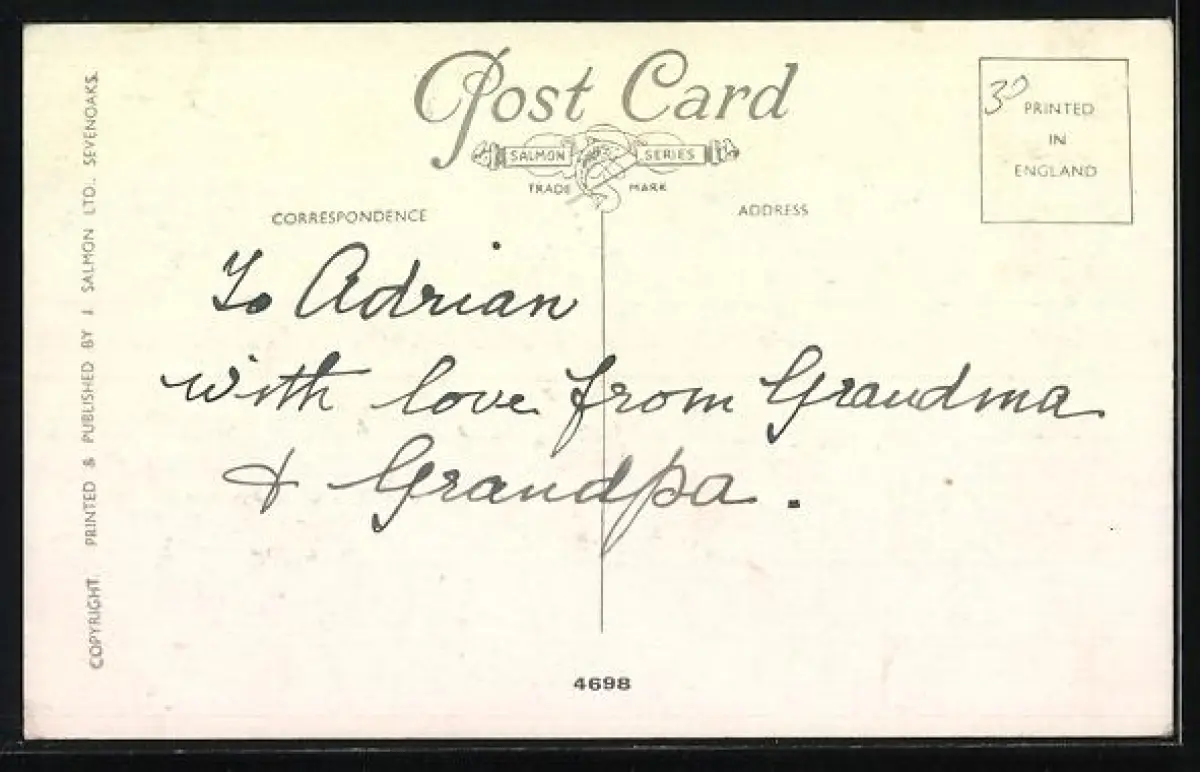 Post Card
SALMON SERIES
TRADE MARK
CORRESPONDENCE
ADDRESS
30
PRINTED
IN
ENGLAND
To Adrian
with love from Grandma
& Grandpa.
4698
COPYRIGHT. PRINTED & PUBLISHED BY J. SALMON LTD., SEVENOAKS.